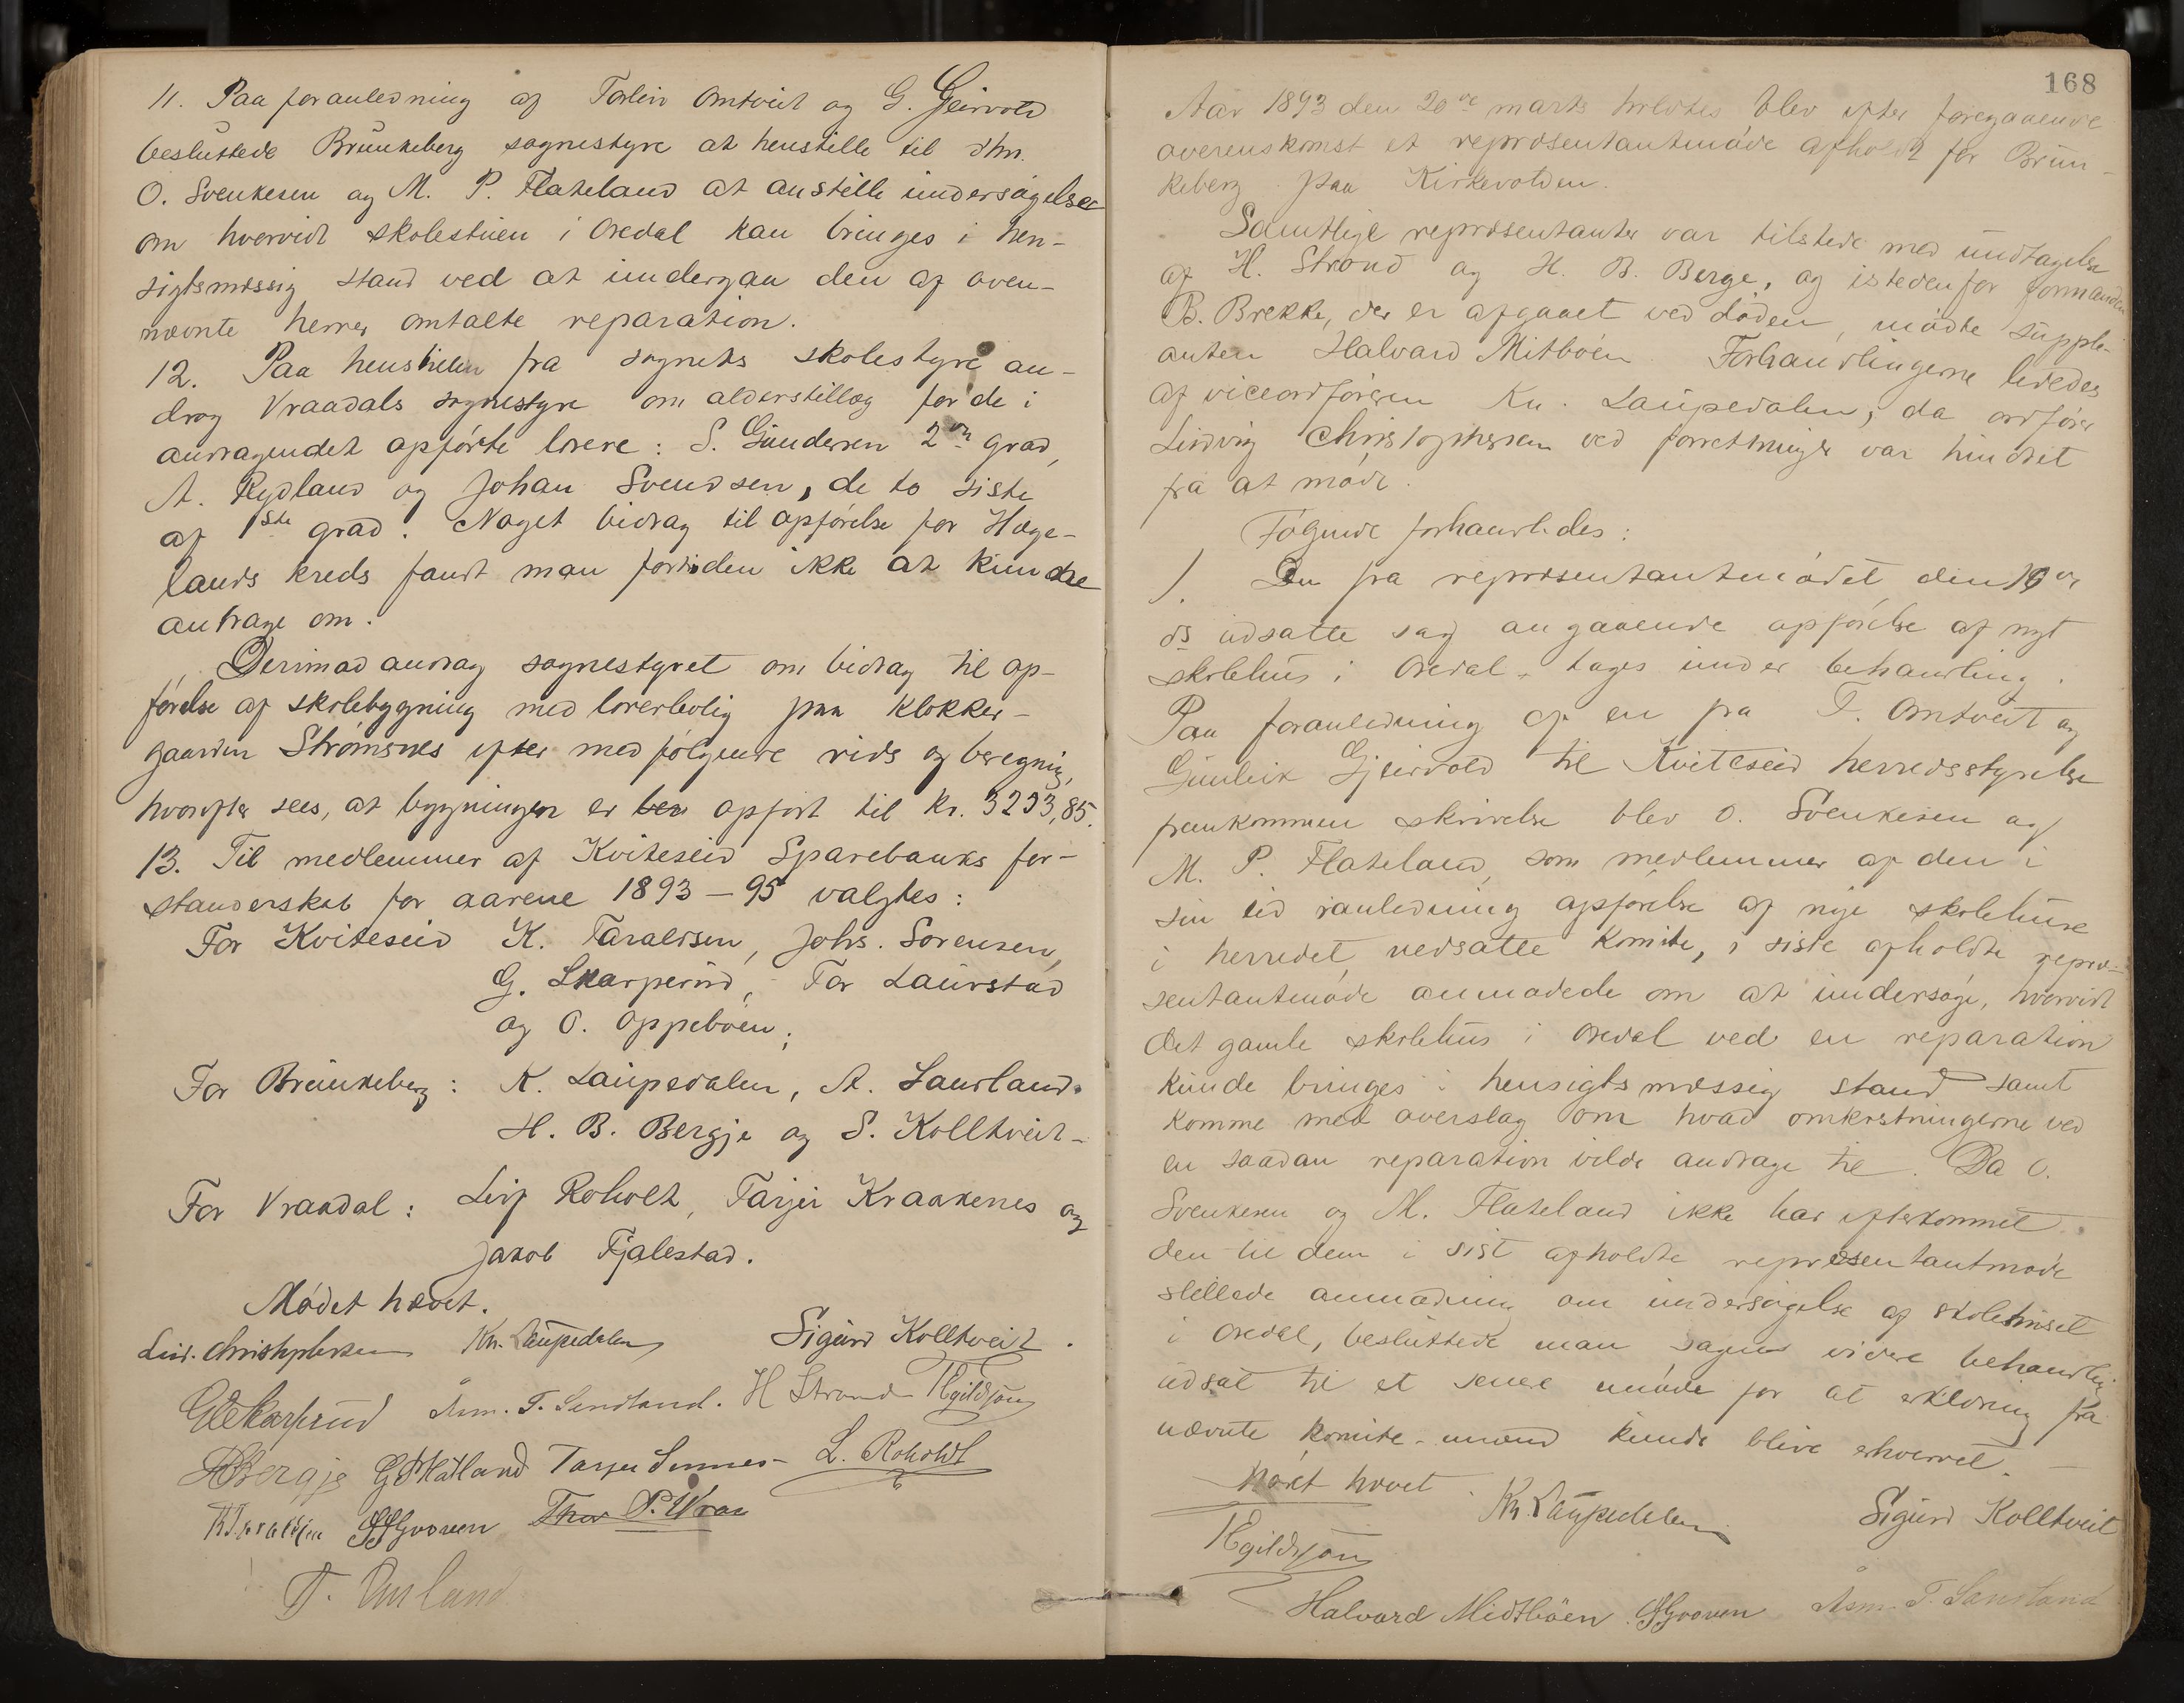 11. Paa foranledning af Torleiv Omtveit og G. Geirvold
besluttede Brunkeberg sognestyre at henstille til dhrr.
O. Svenkesen og M. P. Flateland at anstille undersøgelser
om hvorvidt skolestuen i Ordal kan bringes i hen-
sigtsmæssig stand ved at undergaa den af oven-
nævnte herrer omtalte reparation.
12. Paa henstillen fra sognets skolestyre an-
drog Vraadals sognestyre om alderstillæg for de i
andragendet opførte lærere: S. Gundersen 2den grad,
A. Rydland og Johan Svendsen, de to siste
af 1ste grad. Noget bidrag til opførelse for Hæge-
lands kreds fandt man fortiden ikke at kunde
antrage om.
Derimod androg sognestyret om bidrag til op-
førelse af skolebygning med lærerbolig paa Klokker-
gaarden Strømsnes efter medfølgende rids og beregning,
hvorefter sees, at bygningen er ber opført til kr. 3293,85.
13. Til medlemmer af Kviteseid Sparebanks for-
standerskab for aarene 1893-95 valgtes:
For Kviteseid K. Taraldsen, Johs. Sørensen,
G. Skarperud, Tor Laurstad
og O. Oppeboen;
For Brunkeberg: K. Laupedalen, A. Sandland.
H. B. Bergje og S. Kolltveit-
For Vraadal: Leif Roholt, Tarjei Kraakenes og
Jakob Fjalestad.
Mødet hævet.
Ludv. Christophersen Kn. Laupedalen Sigurd Kolltveit.
GSkarperud Asm. T. Sandland. H Strand TEgildsøn
HBBergje Tarjei Sinnes L. Roholdt
KTaraldsen Thor P. Vraa
168
Aar 1893 den 20de marts holdtes blev efter foregaaende
overenskomst et repræsentantmøde afholdt for Brun-
keberg paa Kirkevolden.
Samtlige repræsentanter var tilstede med undtagelse
af H. Strand og H. B. Berge, og istedenfor formanden
B. Brekke, der er afgaaet ved døden, mødte supple-
anten Halvard Mitbøen. Forhandlingerne lededes
af viceordføreren Kn. Laupedalen, da ordfører
Ludvig Christophersen ved forretninger var hindret
fra at møde.
Følgende forhandledes:
1. Den fra repræsentantmødet den 10de
ds udsatte sag angaaende opførelse af nyt
skolehus i Ordal tages under behandling.
Paa foranledning af en fra T. Omtveit og
Gunleik Gjeirvold til Kviteseid herredsstyrelse
fremkommen skrivelse blev O. Svenkesen og
M. P. Flateland, som medlemmer af den i
sin tid i anledning opførelse af nye skolehuse
i herredet nedsatte komite, i siste afholdte repræ-
sentantmøde anmodede om at undersøge, hvorvidt
det gamle skolehus i Ordal ved en reparation
kunde bringes i hensigtsmæssig stand samt
komme med overslag om hvad omkostningerne ved
en saadan reparation vilde andrage til. Da O.
Svenkesen og M. Flateland ikke har efterkommet
den til dem i sist afholdte repræsentantmøde
stillede anmodning om undersøgelse af skolehuset
i Ordal, besluttede man sagens videre behandling
udsat til et senere møde for at erklæring fra
nævnte komite-mænd kunde blive erhvervet.
Mødet hævet
Kn. Laupedalen Sigurd Kolltveit
TEgildsøn
Halvard Midtbøen Asm. T. Sandland